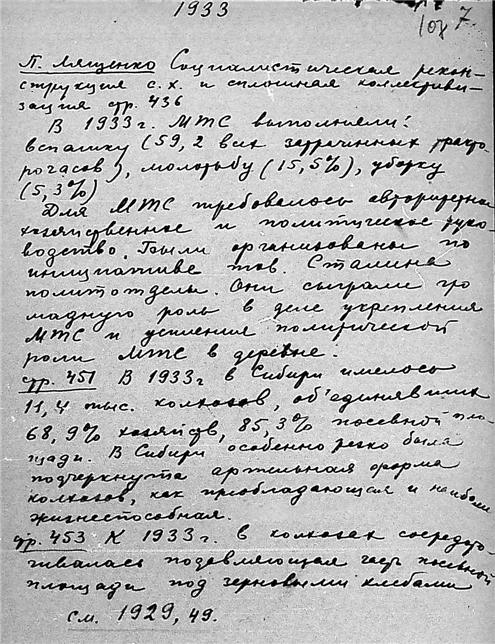 1933
107.
П. Лященко Социалистическая рекон-
струкция с.х. и сплошная коллективи-
зация стр. 436
В 1933г. МТС выполняли:
вспашку (59,2 всех затраченных тракто-
рочасов), молотьбу (15,5%), уборку
(5,3%)
Для МТС требовалось авторитетное
хозяйственное и политическое руко-
водство. Были организованы по
инициативе тов. Сталина
политотделы. Они сыграли гро
мадную роль в деле укрепления
МТС и усиления политической
роли МТС в деревне.
стр. 451 В 1933г в Сибири имелось
11,4 тыс. колхозов, об'единявших
68,9% хозяйств, 85,3% посевной пло-
щади. В Сибири особенно резко была
подчеркнута артельная форма
колхозов, как преобладающая и наиболее
жизнеспособная.
стр. 453 К 1933г. в колхозах сосредото-
чивалась подавляющая часть посевной
площади под зерновыми хлебами
см. 1929, 49.